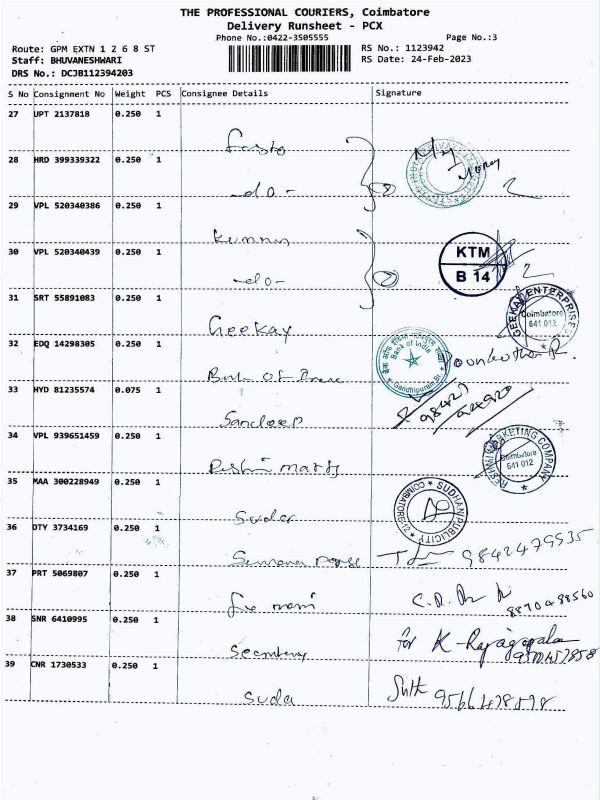 THE PROFESSIONAL COURIERS, Coimbatore
Delivery Runsheet - PCX
Phone No.:0422-3505555
Page No.:3
Route: GPM EXTN 1 2 6 8 ST
RS No.: 1123942
Staff: BHUVANESHWARI
RS Date: 24-Feb-2023
DRS No.: DCJB112394203
S No Consignment No Weight PCS Consignee Details Signature
27 UPT 2137818 0.250 1
28 HRD 399339322 0.250 1
-do-
29 VPL 520340386 0.250 1
30 VPL 520340439 0.250 1
-do-
2
KTM
B 14
31 SRT 55891083 0.250 1
Geekay
GEEKAY ENTERPRISES
Coimbatore
641 012
32 EDQ 14298305 0.250 1
Bank of India
Gandhipuram Br.
33 HYD 81235574 0.075 1
Sandeep
34 VPL 939651459 0.250 1
MARKETING COMPANY
Coimbatore
641 012
35 MAA 300228949 0.250 1
SUDHAN PUBLICITY
COIMBATORE-12
36 DTY 3734169 0.250 1
9842479535
37 PRT 5069807 0.250 1
8870488560
38 SNR 6410995 0.250 1
for K-Rajagopalan
39 CNR 1730533 0.250 1
Suda